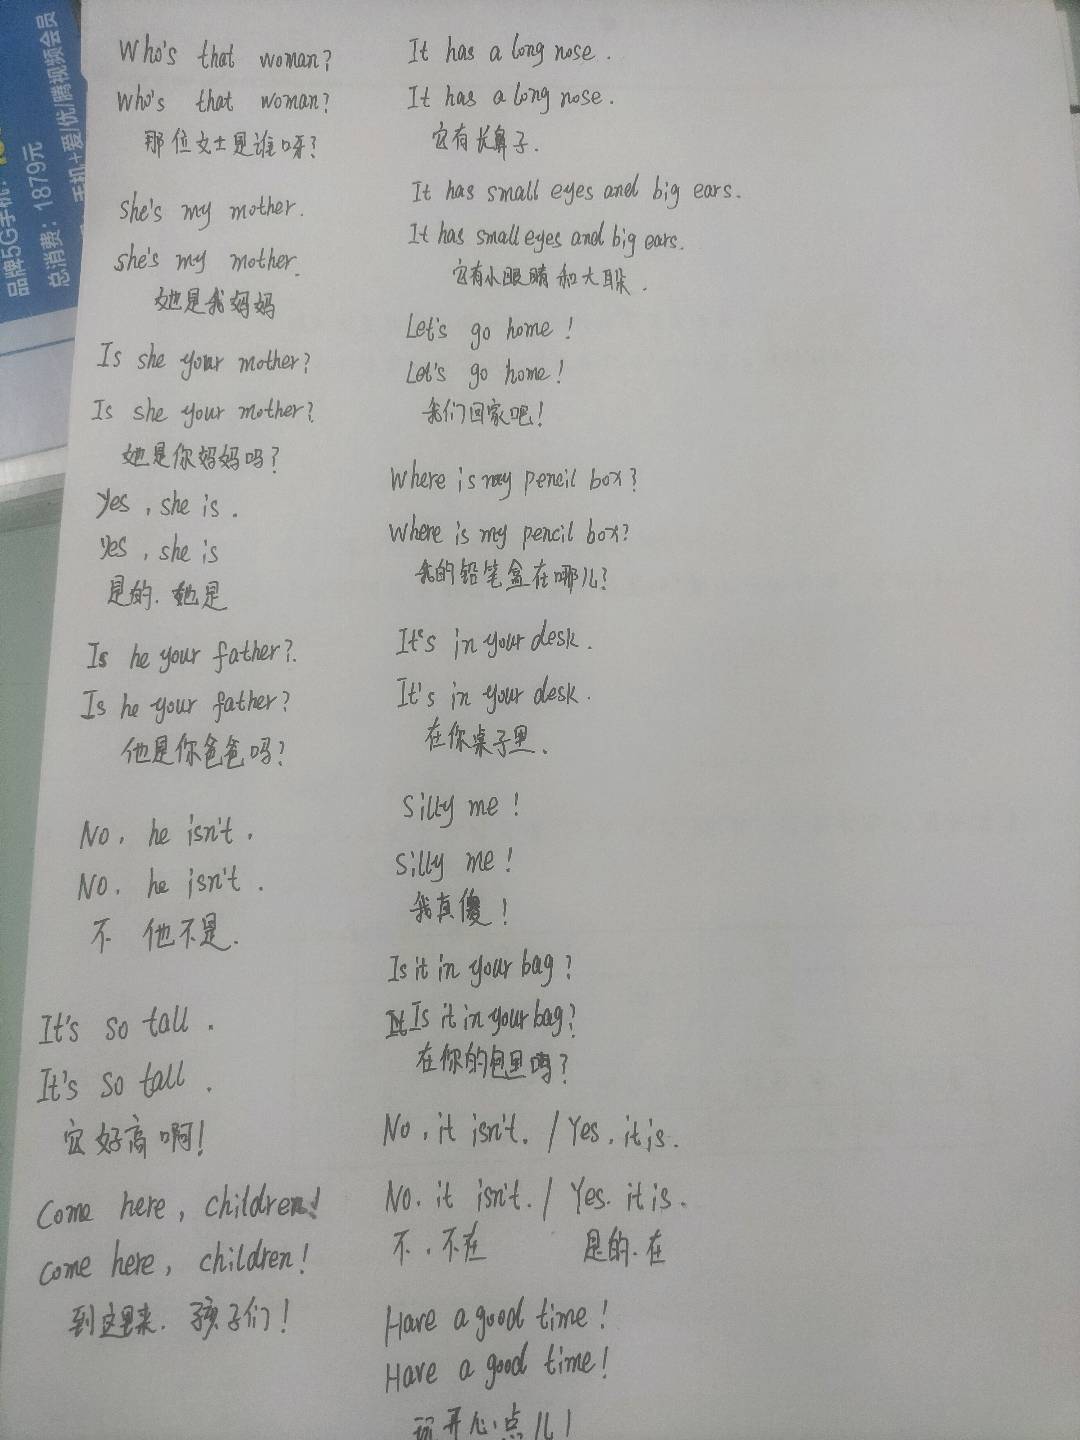 品牌5G手机:
总消费: 1879元
手机+爱/优/腾视频会员
Who's that woman?
Who's that woman?
那位女士是谁呀?
She's my mother.
She's my mother.
她是我妈妈
Is she your mother?
Is she your mother?
她是你妈妈吗?
Yes, she is.
Yes, she is
是的. 她是
Is he your father?.
Is he your father?
他是你爸爸吗?
No, he isn't.
No. he isn't.
不 他不是.
It's so tall.
It's so tall.
它好高啊!
Come here, children!
Come here, children!
到这里来. 孩子们!
It has a long nose.
It has a long nose.
它有长鼻子.
It has small eyes and big ears.
It has small eyes and big ears.
它有小眼睛和大耳朵.
Let's go home!
Let's go home!
我们回家吧!
Where is my pencil box?
Where is my pencil box?
我的铅笔盒在哪儿?
It's in your desk.
It's in your desk.
在你桌子里、
Silly me!
Silly me!
我真傻!
Is it in your bag?
Is it in your bag?
在你的包里吗?
No, it isn't. / Yes, it is.
No. it isn't. / Yes. it is.
不, 不在 是的. 在
Have a good time!
Have a good time!
玩开心点儿!